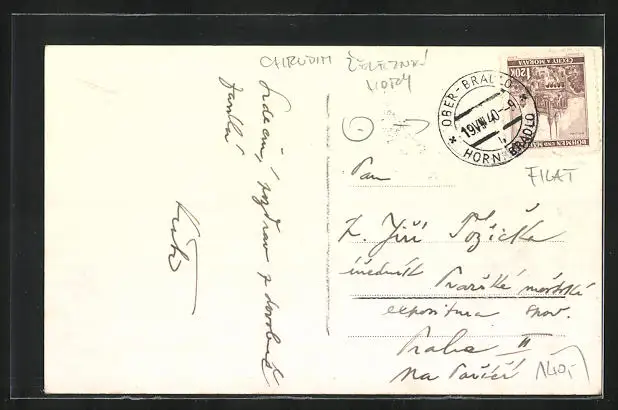 CHRUDIM ŽELEZNÉ
HORY
1.20K
ČECHY A MORAVA
BÖHMEN UND MÄHREN
OBER-BRADLO
19.VIII.40.-9
HORNÍ BRADLO
FILAT
Srdečný pozdrav z dovolené
Pan
Jiří Požička
úředník Pražské městské
expositura spoř.
Praha II
Na Poříčí